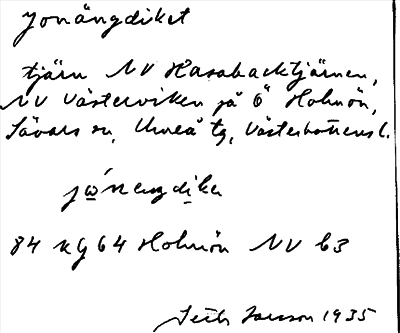 Jonängdiket
tjärn NV Hasabacktjärnen,
NV Västerviken på Ö Holmön,
Sävars sn, Umeå tg, Västerbottens l.
jo̲´nεŋdi̲kε
84 Kg 64 Holmön NV b3
1935